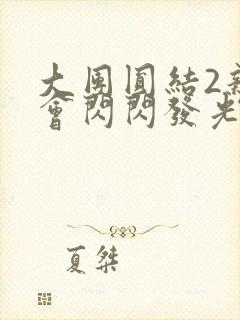 大團圓結2新
會閃閃發光
夏桀